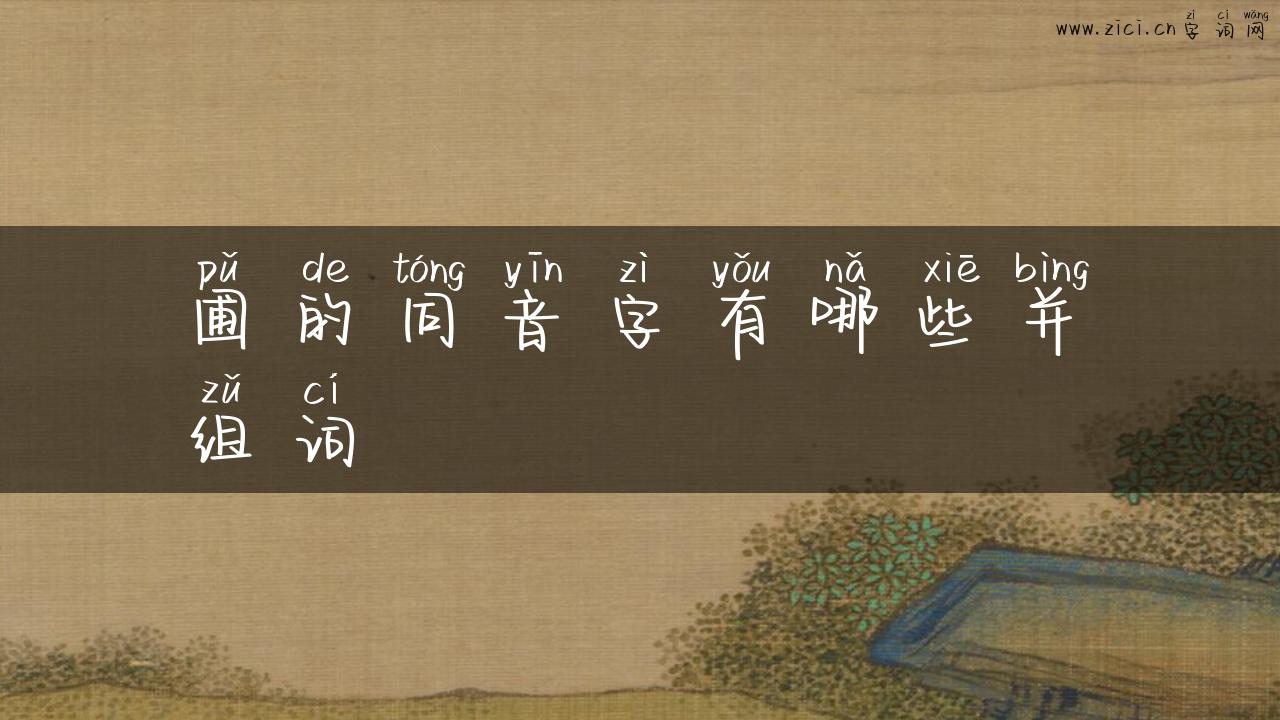 zì cí wǎng
www.zici.cn 字词网
pǔ de tóng yīn zì yǒu nǎ xiē bìng
圃的同音字有哪些并
zǔ cí
组词